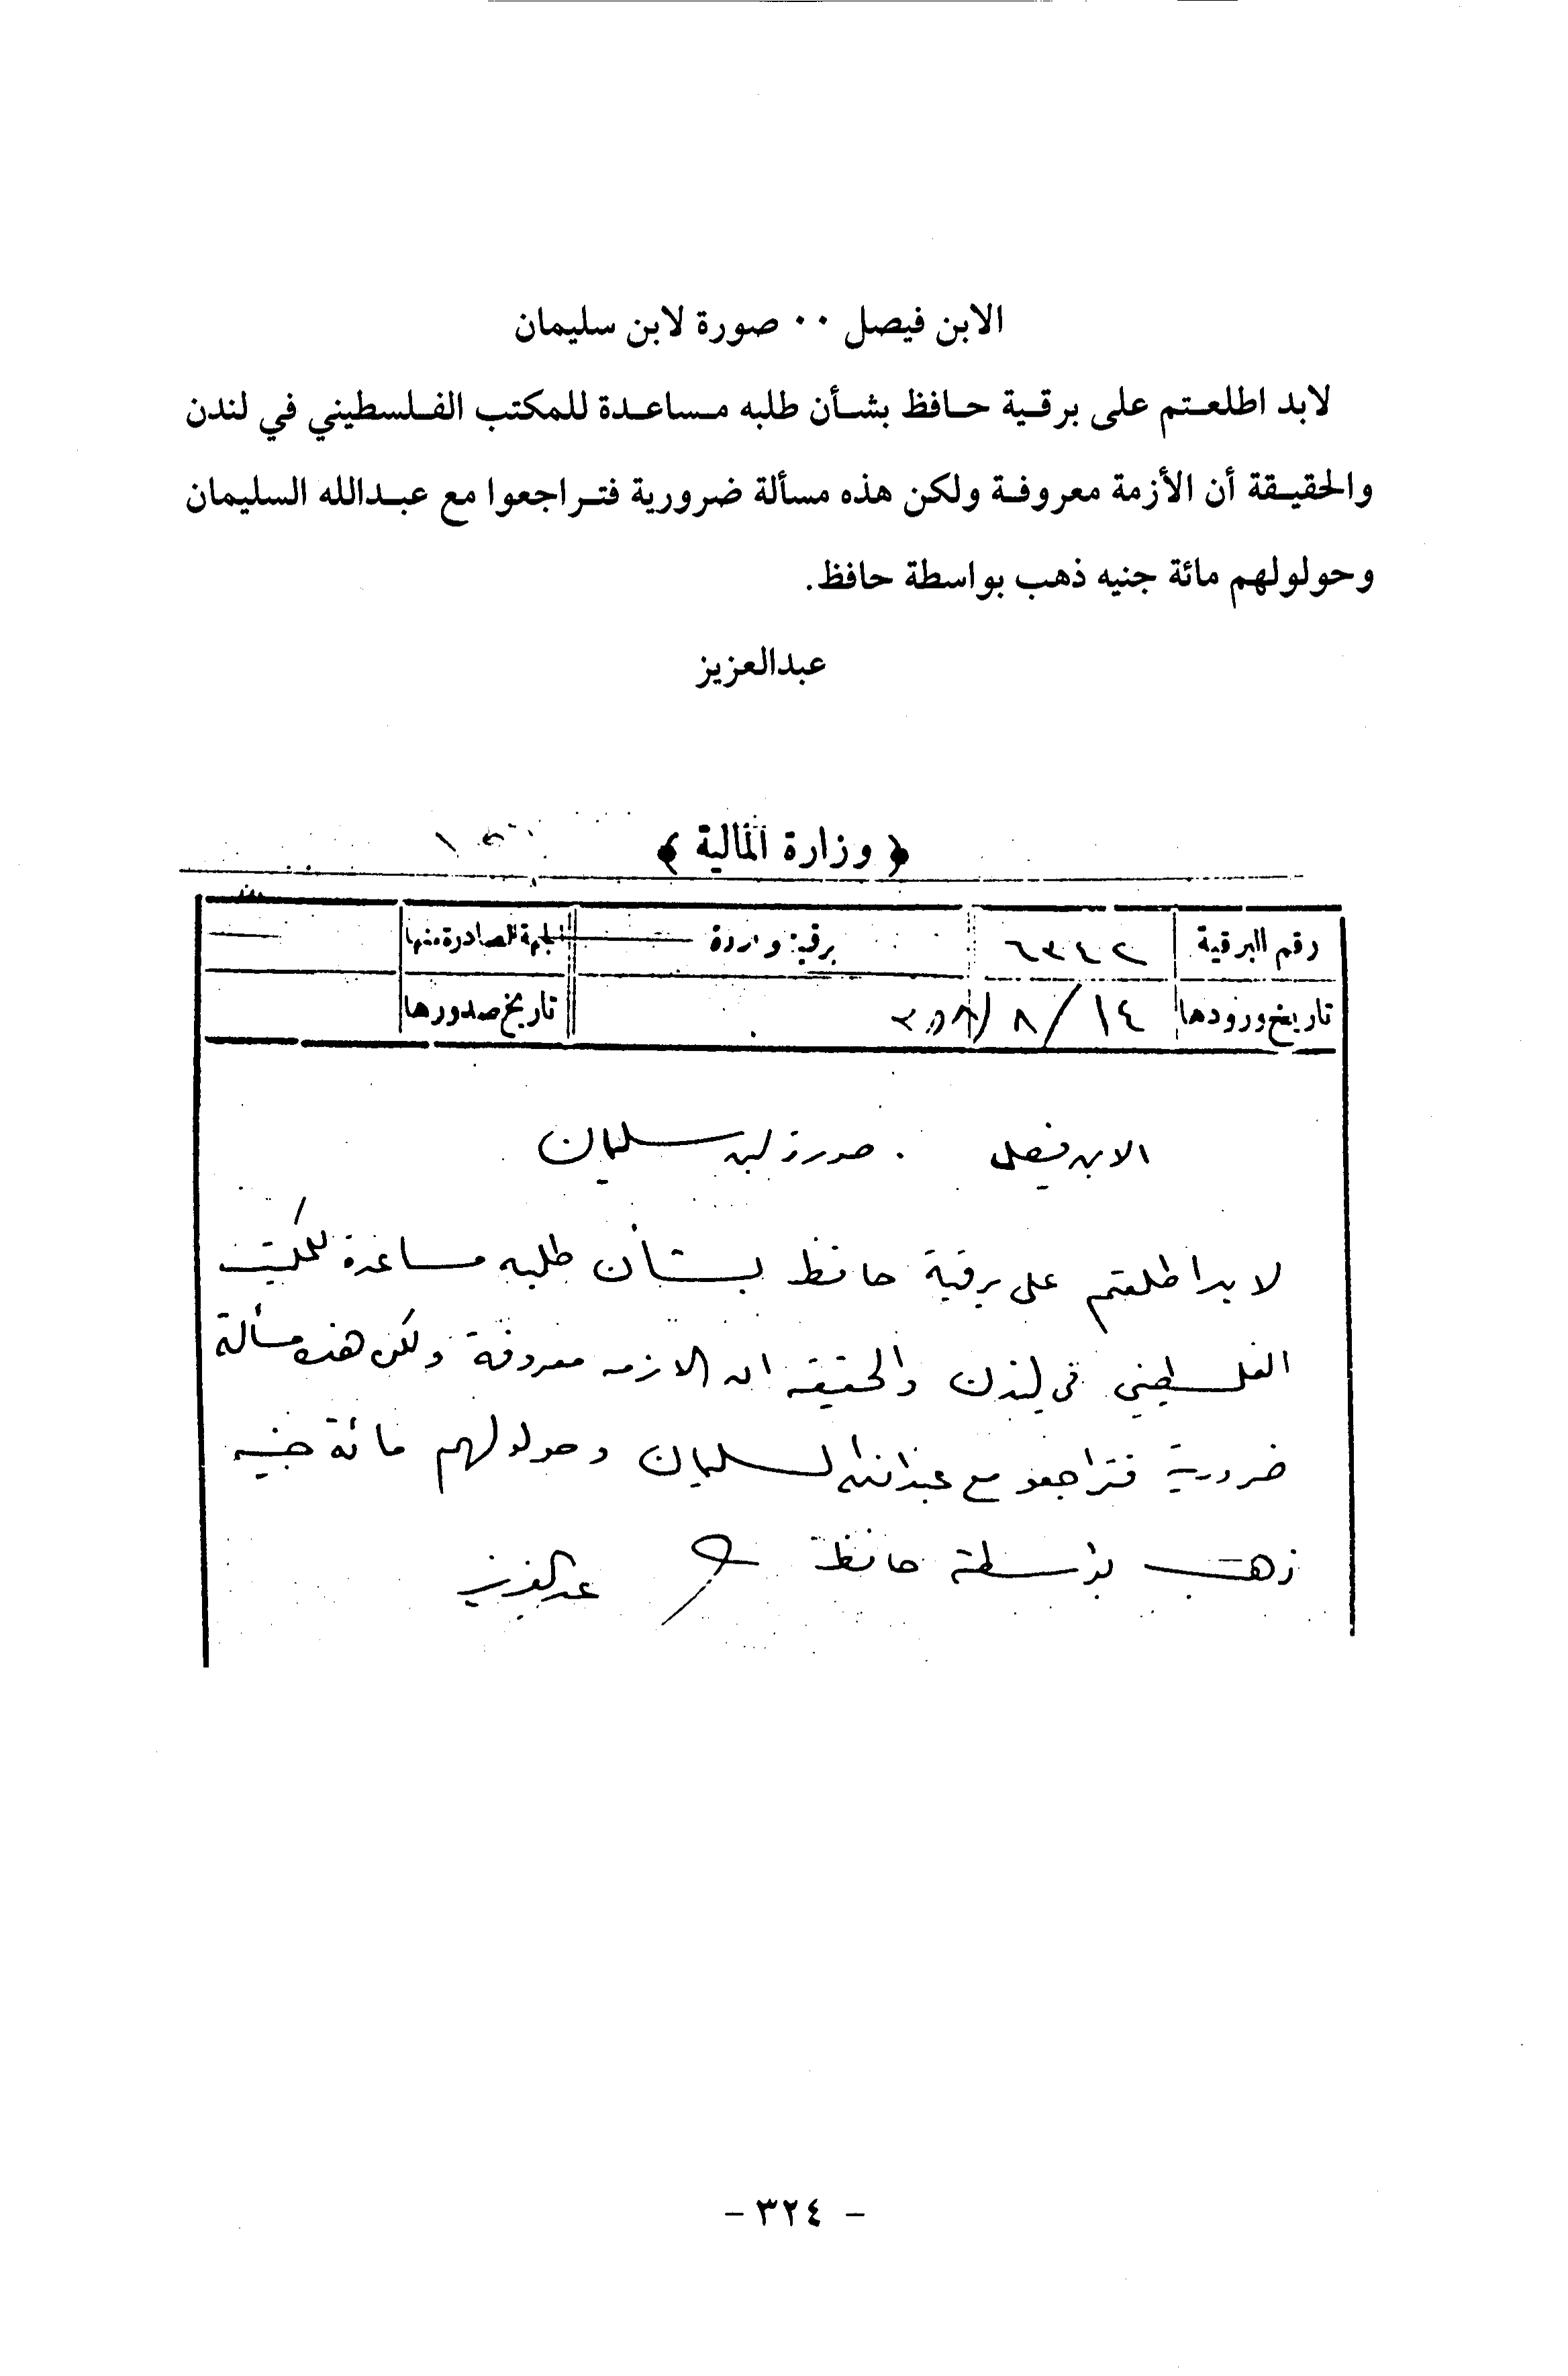 الابن فيصل ٠٠ صورة لابن سليمان
لابد اطلعتم على برقية حافظ بشأن طلبه مساعدة للمكتب الفلسطيني في لندن
والحقيقة أن الأزمة معروفة ولكن هذه مسألة ضرورية فتراجعوا مع عبدالله السليمان
وحولولهم مائة جنيه ذهب بواسطة حافظ.
عبدالعزيز
﴿ وزارة المالية ﴾
رقم البرقية برقية واردة الجهة الصادرة منها
تاريخ ورودها ١٤/٨/ تاريخ صدورها
الابن فيصل . صورة لبن سليمان
لا بد اطلعتم على برقية حافظ بشأن طلبه مساعدة للمكتب
الفلسطيني في لندن والحقيقه ان الازمه معروفة ولكن هذه مسألة
ضرورية فتراجعو مع عبدالله السليمان وحولولهم مائة جنيه
ذهب بواسطة حافظ عبدالعزيز
- ٣٢٤ -